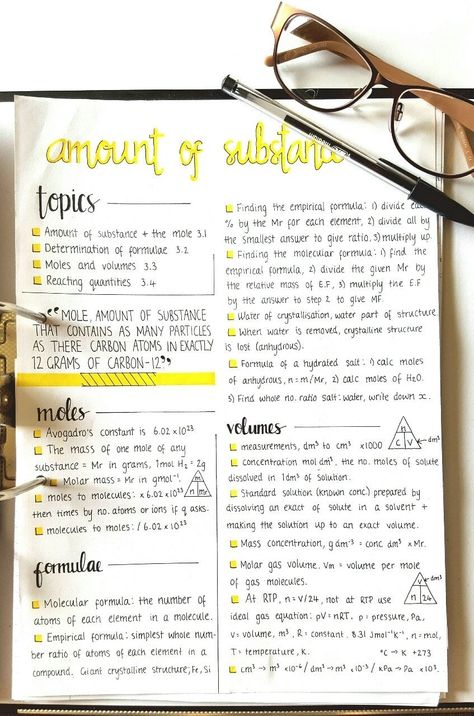 amount of substance
topics
Amount of substance + the mole 3.1
Determination of formulae 3.2
Moles and volumes 3.3
Reacting quantities 3.4
"MOLE, AMOUNT OF SUBSTANCE
THAT CONTAINS AS MANY PARTICLES
AS THERE CARBON ATOMS IN EXACTLY
12 GRAMS OF CARBON-12"
moles
Avogadro's constant is 6.02 x10²³
The mass of one mole of any
substance = Mr in grams, 1mol H₂ = 2g
Molar mass = Mr in gmol⁻¹.
moles to molecules: x 6.02 x10²³
m
n mr
then times by no. atoms or ions if q asks.
molecules to moles: / 6.02 x10²³
formulae
Molecular formula: the number of
atoms of each element in a molecule.
Empirical formula: simplest whole num-
ber ratio of atoms of each element in a
compound. Giant crystalline structure, Fe, Si
Finding the empirical formula: 1) divide each
% by the Mr for each element, 2) divide all by
the smallest answer to give ratio, 3) multiply up.
Finding the molecular formula: 1) find the
empirical formula, 2) divide the given Mr by
the relative mass of E.F, 3) multiply the E.F
by the answer to step 2 to give MF.
Water of crystallisation, water part of structure.
When water is removed, crystalline structure
is lost (anhydrous).
Formula of a hydrated salt: 1) calc moles
of anhydrous, n = m/Mr, 2) calc moles of H₂O.
3) Find whole no. ratio salt: water, write down x.
volumes
measurements, dm³ to cm³ x1000
n
C V
dm³
concentration mol dm³, the no. moles of solute
dissolved in 1dm³ of solution.
Standard solution (known conc) prepared by
dissolving an exact of solute in a solvent +
making the solution up to an exact volume.
Mass concentration, g dm⁻³ = conc dm³ x Mr.
Molar gas volume, Vm = volume per mole
of gas molecules.
At RTP, n = V/24, not at RTP use
V
n 24
dm³
ideal gas equation: pV = nRT. p = pressure, Pa,
V = volume, m³, R = constant, 8.31 Jmol⁻¹K⁻¹, n = mol,
T = temperature, K. °C → K +273
cm³ → m³ x10⁻⁶ / dm³ → m³ x10⁻³ / kPa → Pa x10³.